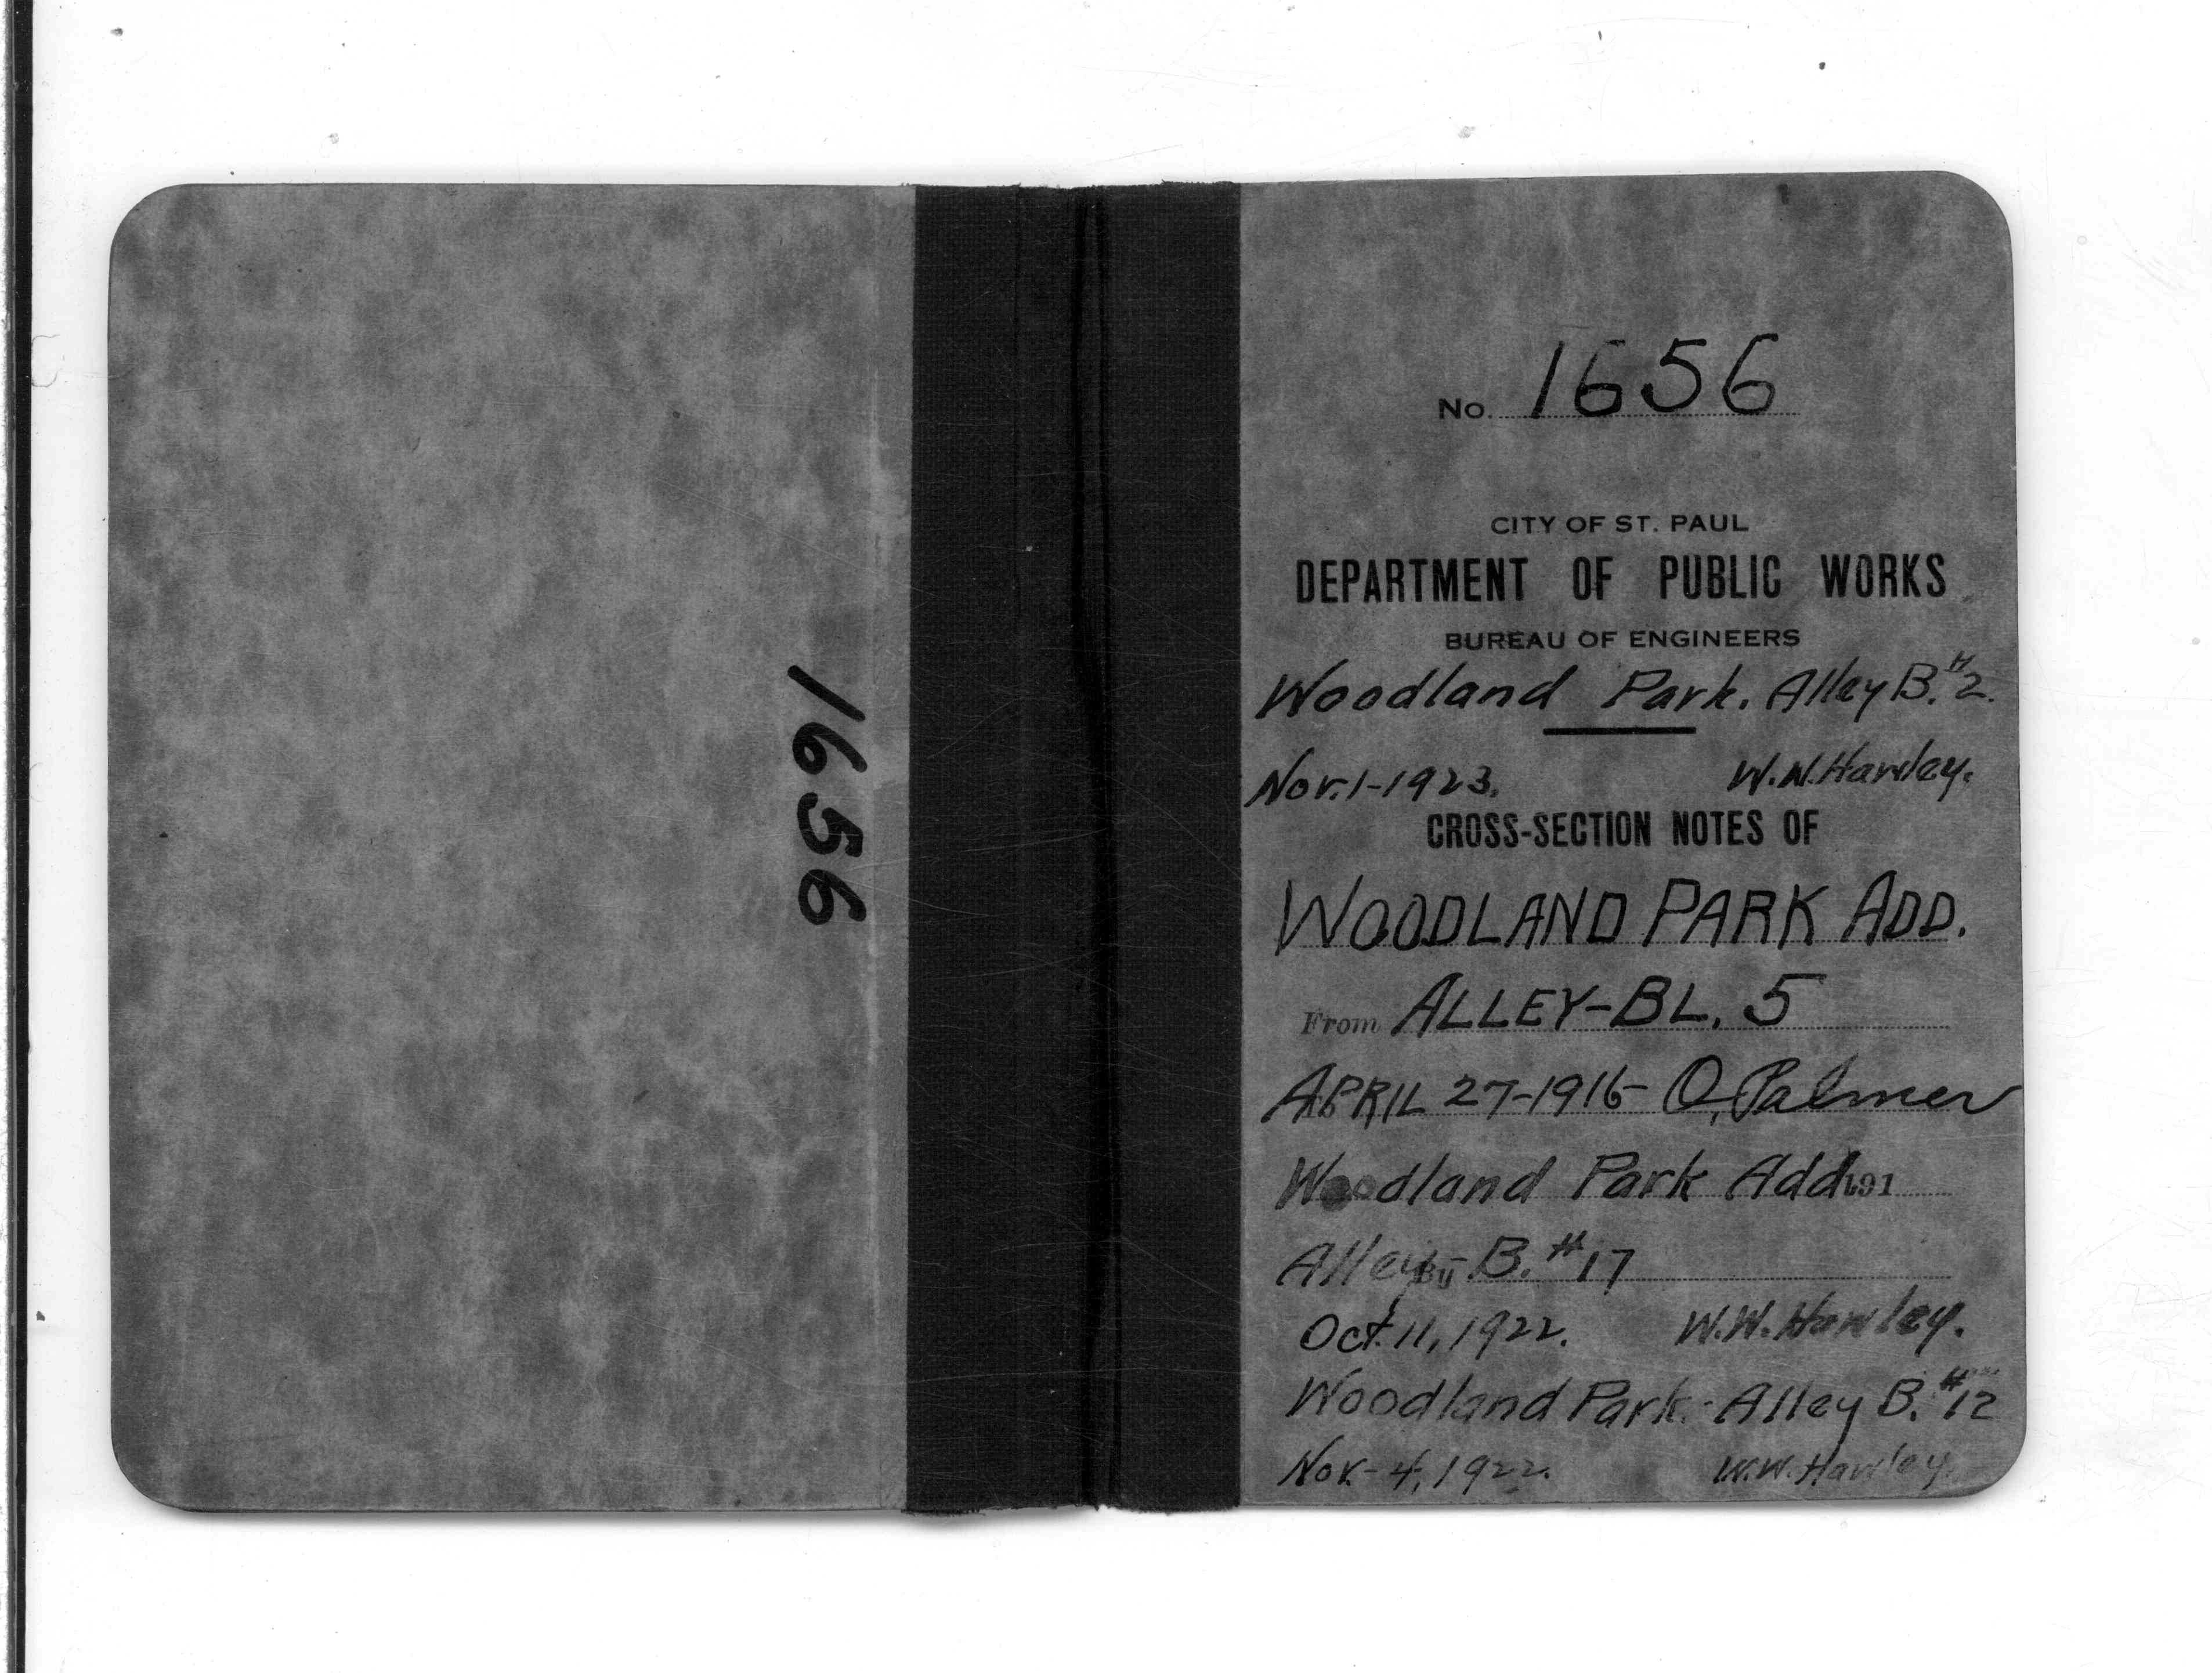 1656
No. 1656
CITY OF ST. PAUL
DEPARTMENT OF PUBLIC WORKS
BUREAU OF ENGINEERS
Woodland Park. Alley B. #2.
Nov. 1-1923. W.W. Hawley.
CROSS-SECTION NOTES OF
WOODLAND PARK ADD.
From ALLEY-BL. 5
APRIL 27-1916- O. Palmer
Woodland Park Add. 191
Alley By - B. #17
Oct. 11, 1922. W.W. Hawley.
Woodland Park. - Alley B. #12
Nov. - 4, 1922. W.W. Hawley.